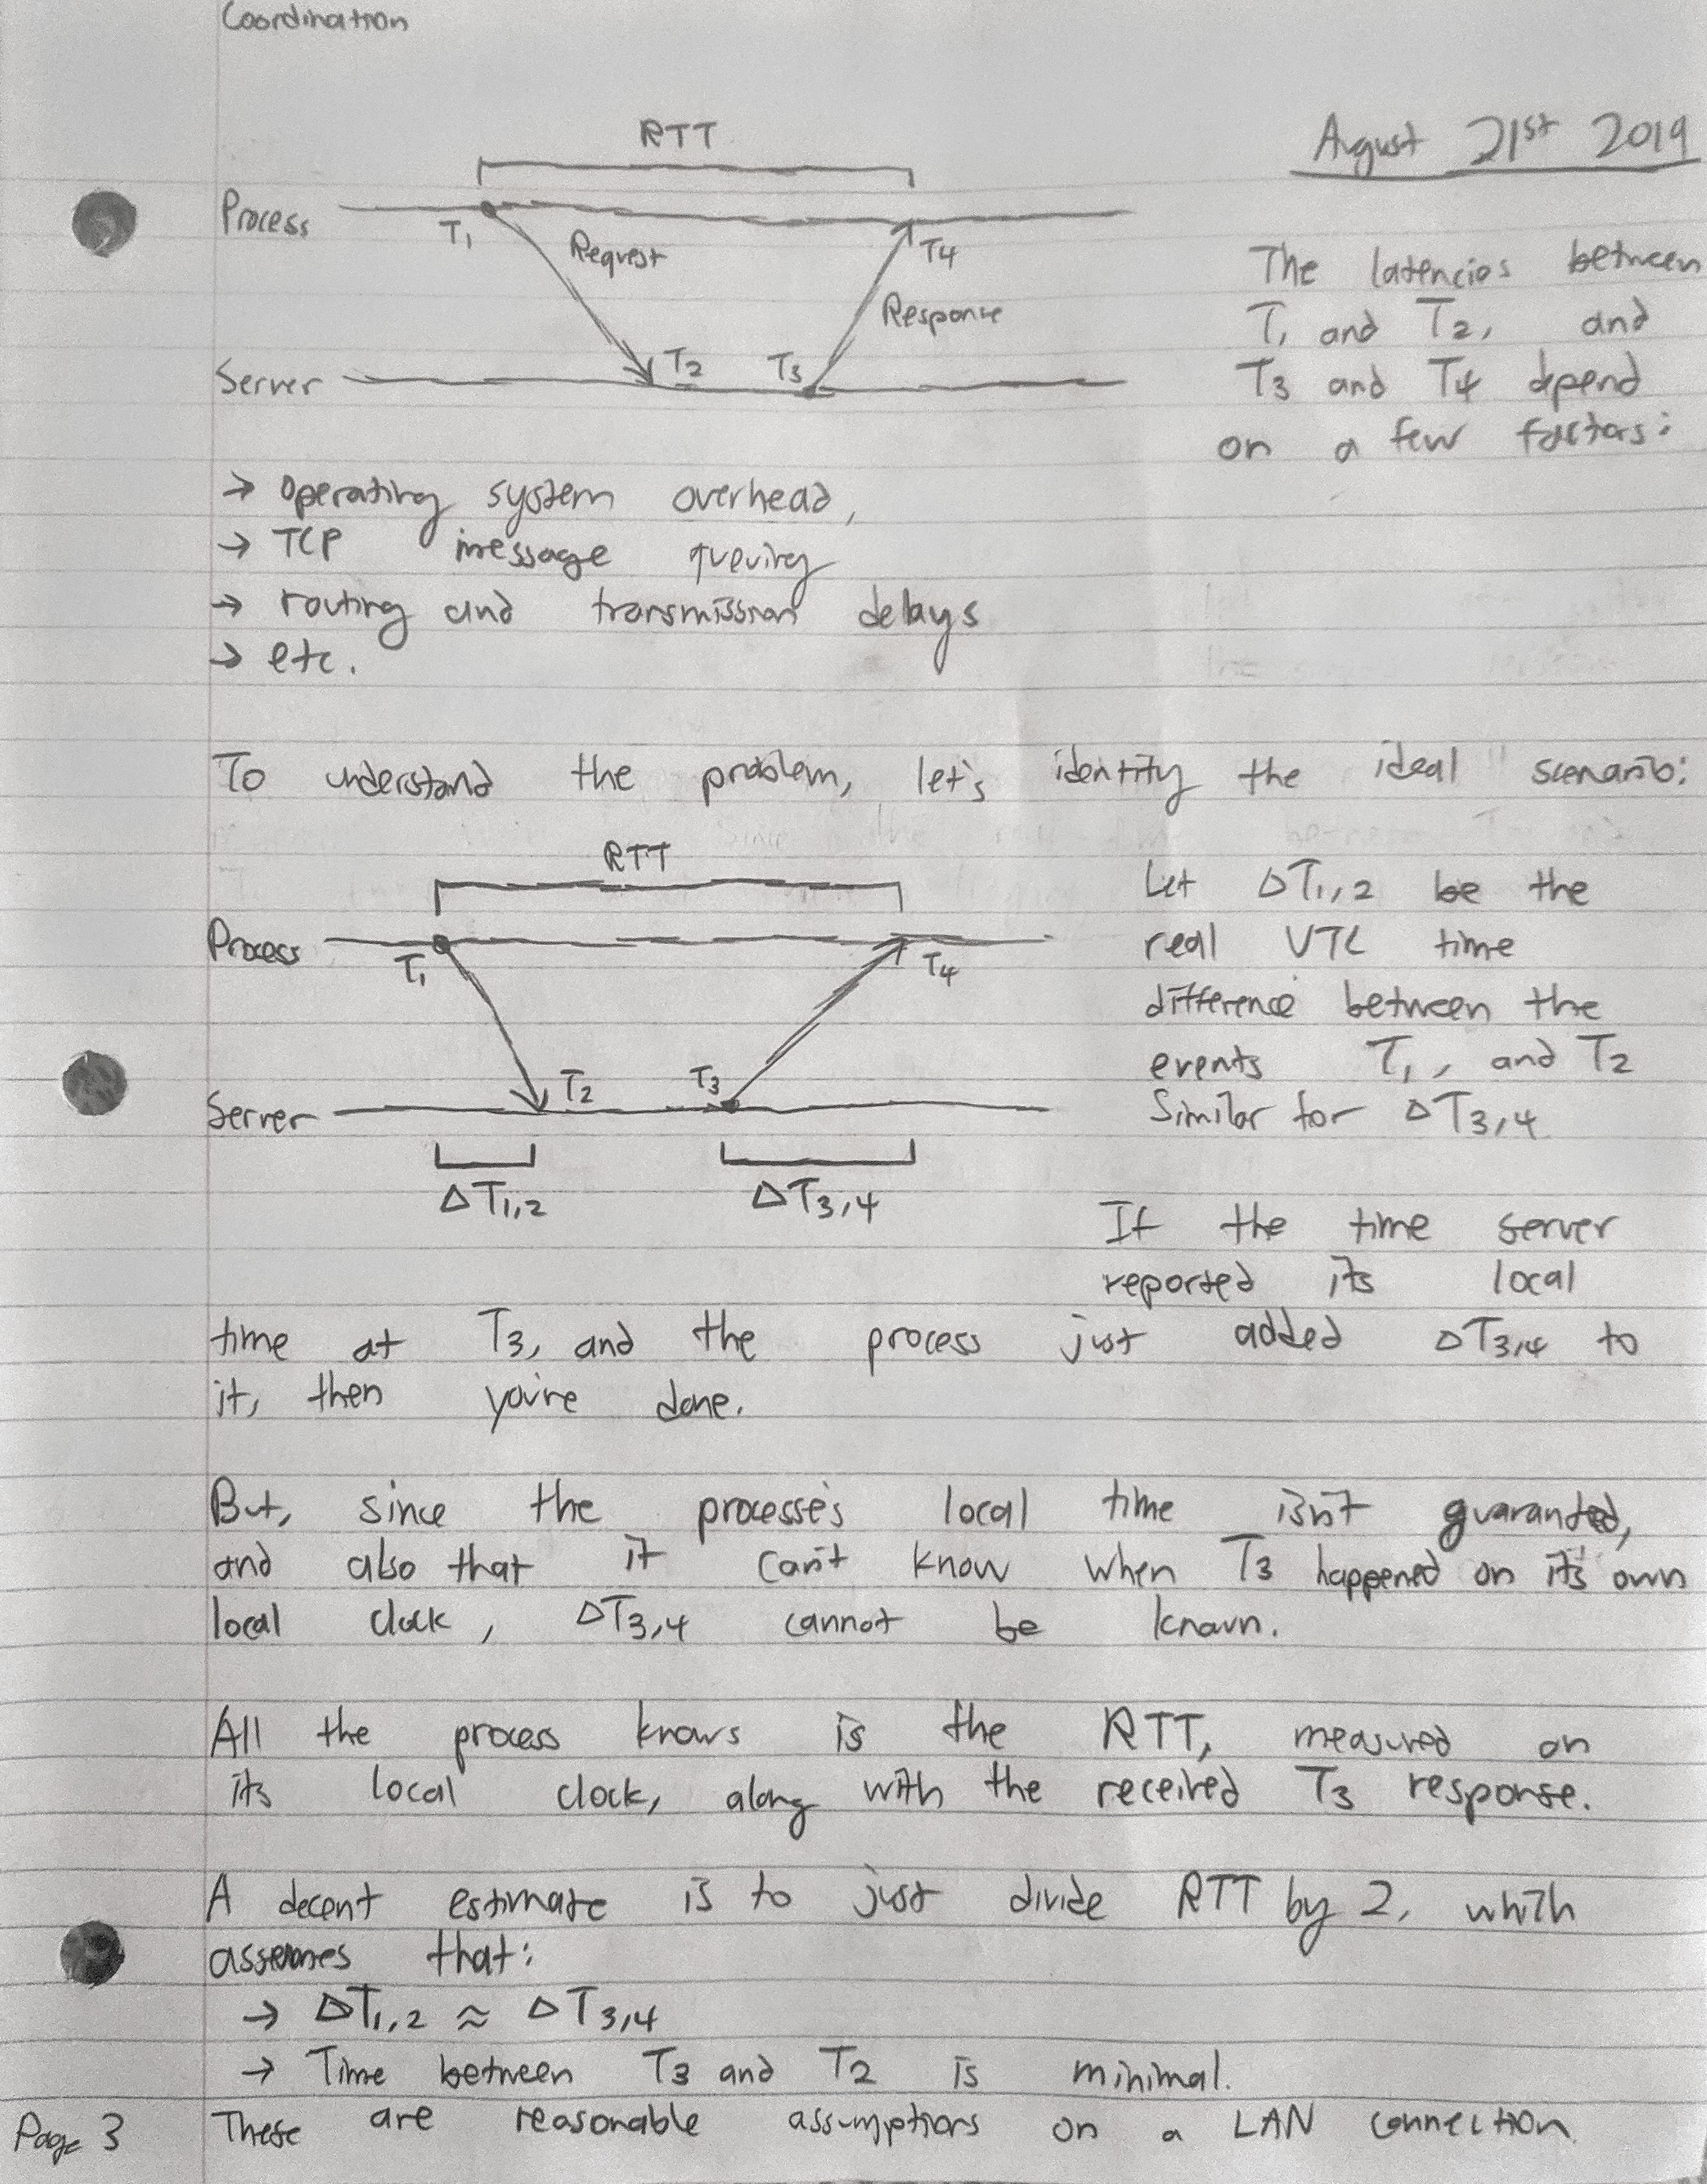 Coordination
August 21st 2019
RTT
Process
T1
Request
T4
Response
Server
T2
T3
The latencies between
T1 and T2, and
T3 and T4 depend
on a few factors:
→ operating system overhead,
→ TCP message queuing
→ routing and transmission delays
→ etc.
To understand the problem, let's identify the ideal scenario:
RTT
Process
T1
T4
Server
T2
T3
ΔT1,2
ΔT3,4
Let ΔT1,2 be the
real UTC time
difference between the
events T1, and T2
Similar for ΔT3,4
If the time server
reported its local
time at T3, and the process just added ΔT3,4 to
it, then you're done.
But, since the processe's local time isn't guaranteed,
and also that it can't know when T3 happened on it's own
local clock, ΔT3,4 cannot be known.
All the process knows is the RTT, measured on
its local clock, along with the received T3 response.
A decent estimate is to just divide RTT by 2, which
assumes that:
→ ΔT1,2 ≈ ΔT3,4
→ Time between T3 and T2 is minimal.
These are reasonable assumptions on a LAN connection.
Page 3